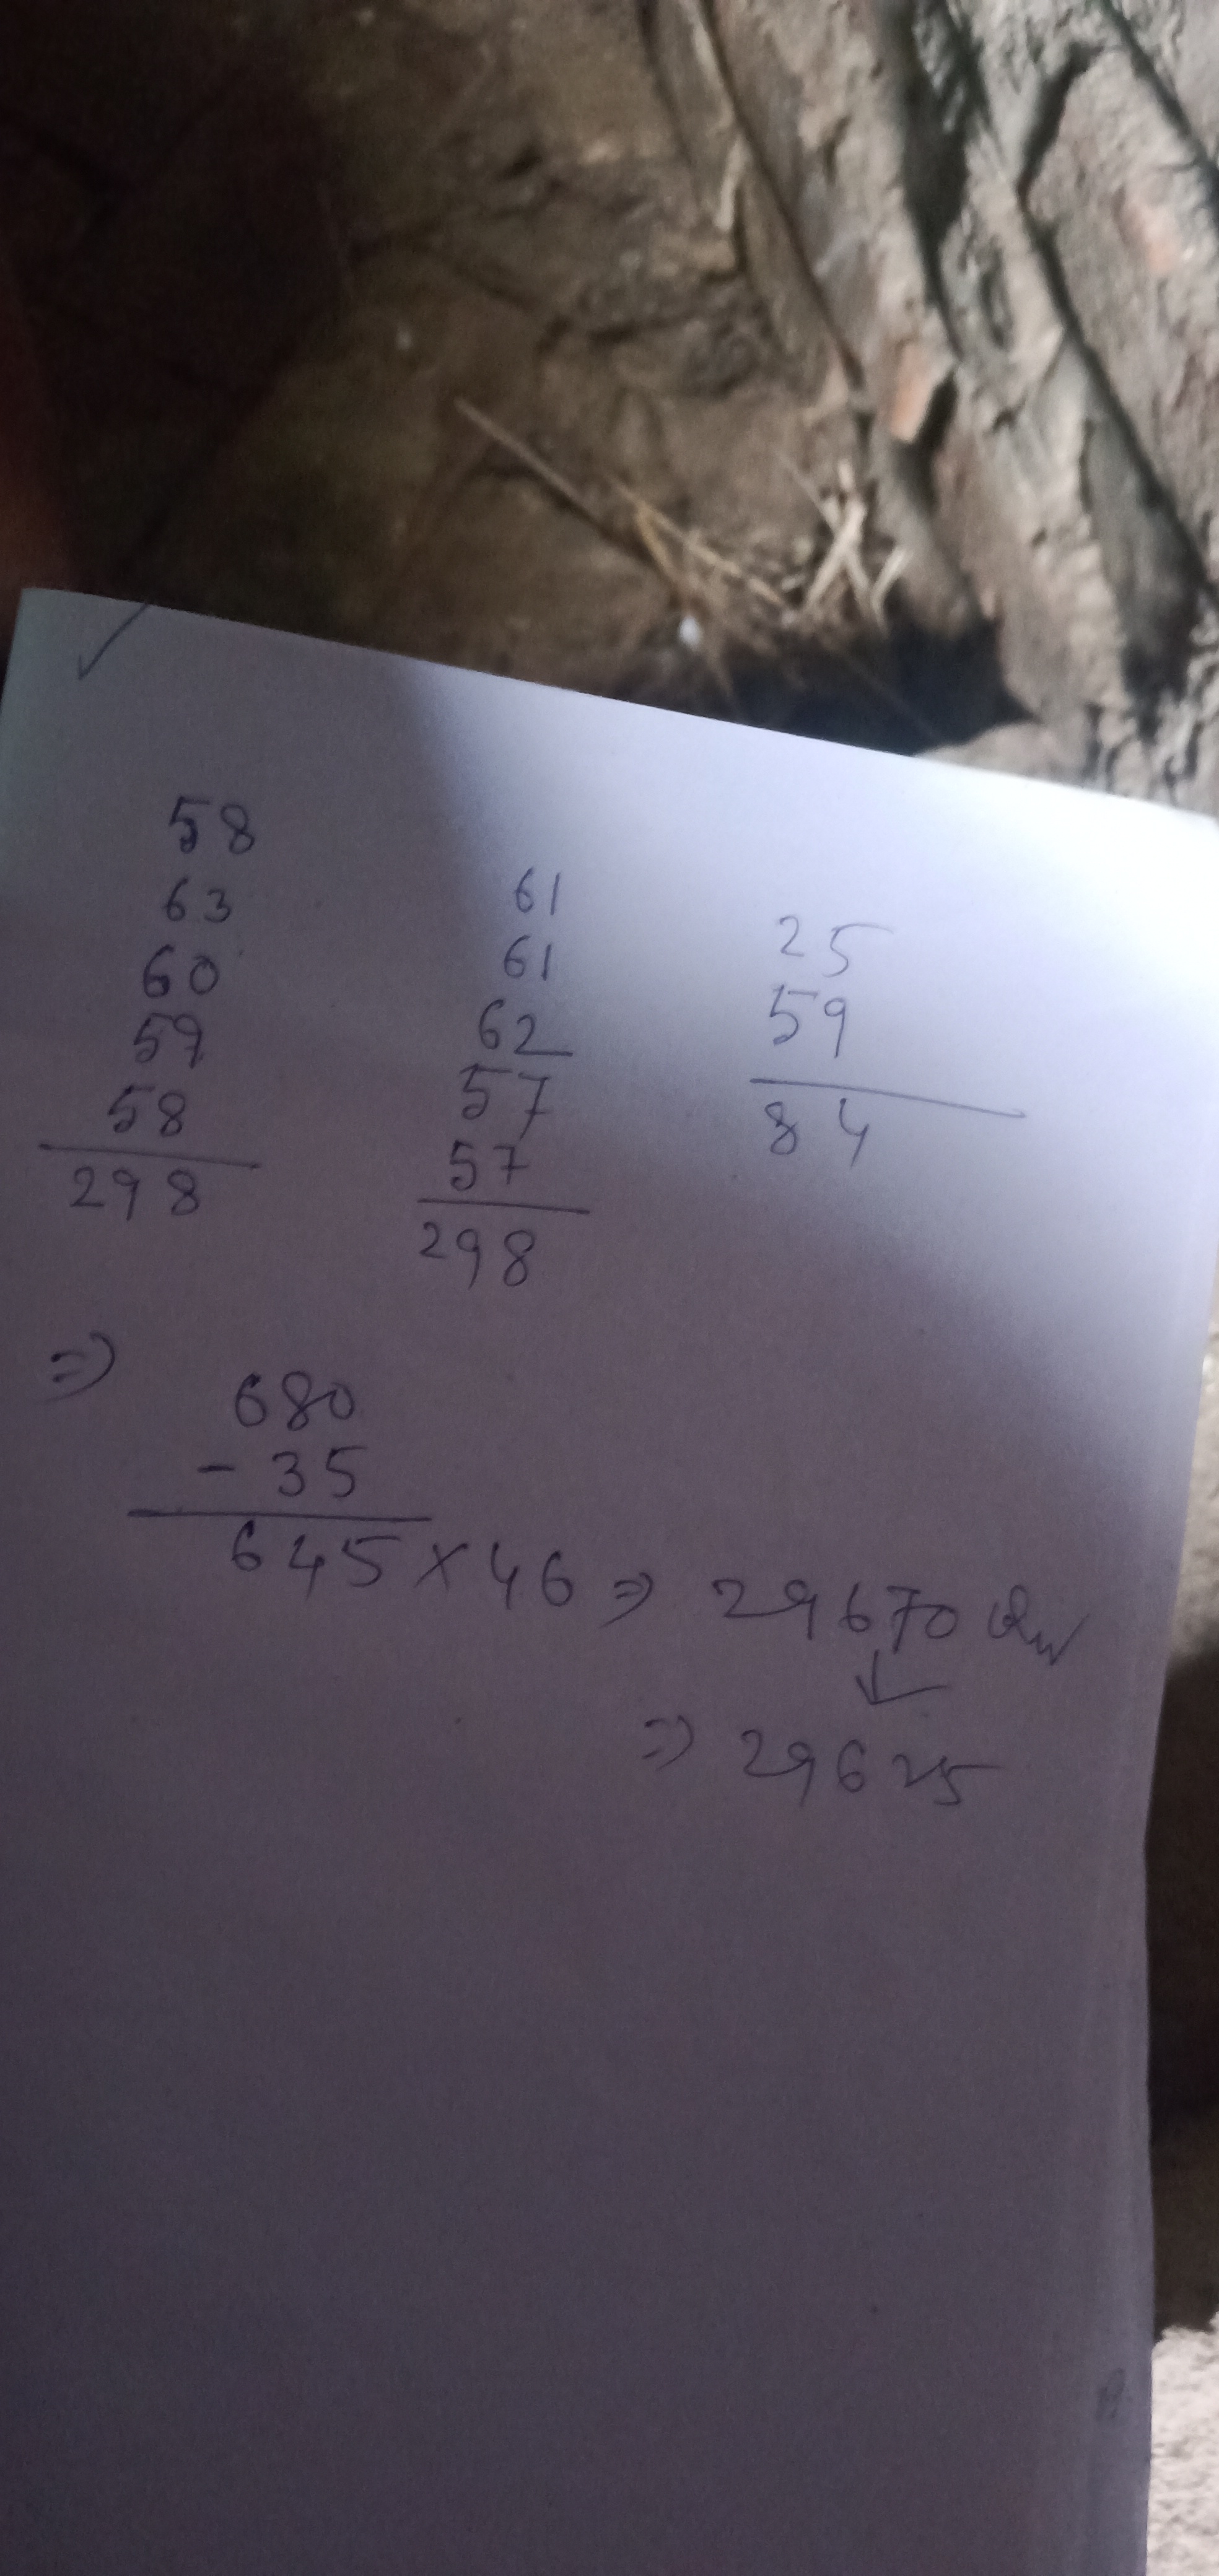 58
63
60
59
58
298
61
61
62
57
57
298
25
59
84
=>
680
- 35
645 × 46 => 29670
=> 29625